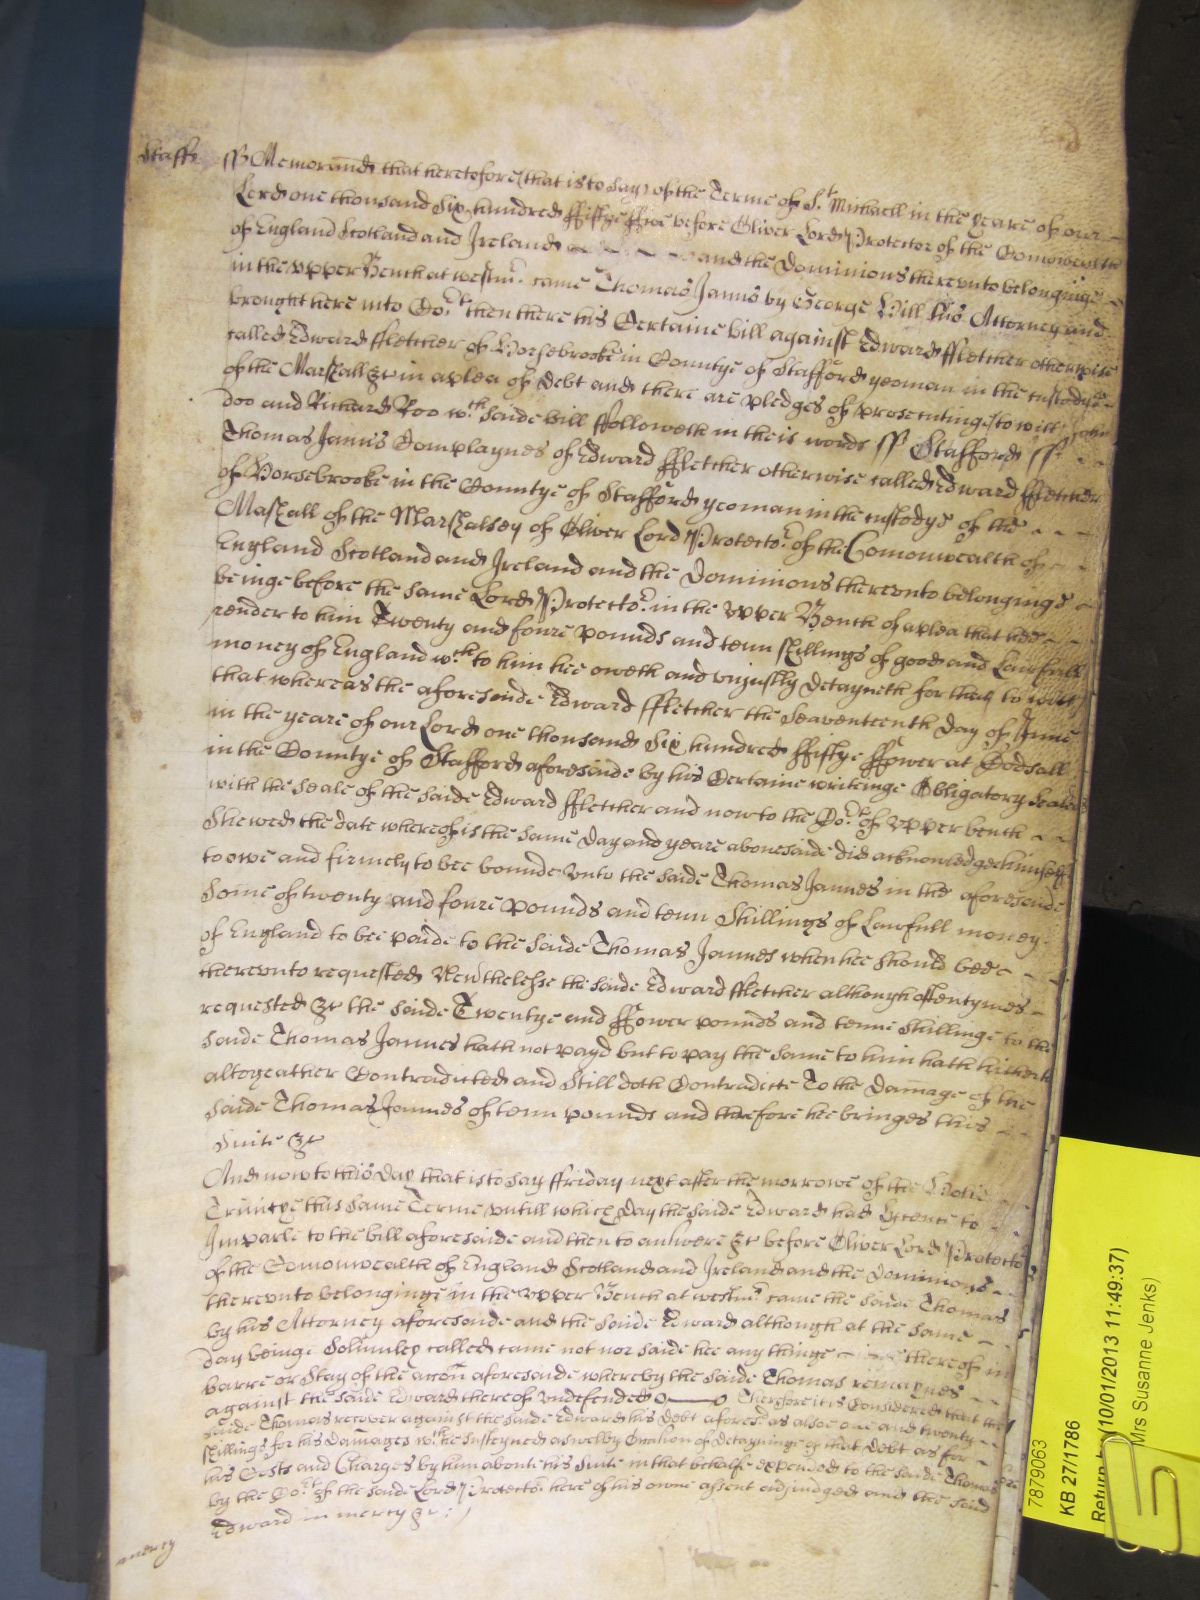 Staff ss Memorand that heretofore (that is to say) of the Terme of St. Michaell in the yeare of our
Lord one thousand Six hundred ffiftye ffive before Oliver Lord Protector of the Comonwealth
of England Scotland and Ireland and the Dominions thereunto belonginge
in the upper Bench at westmr. came Thomas Jannis by George Hill his Attorney and
brought here into Cort then there his Certaine bill against Edward ffletcher otherwise
called Edward ffletcher of Horsebrooke in Countye of Stafford yeoman in the custodye
of the Marshall &c in a plea of Debt and there are pledges of prosecutinge (to witt) John
Doo and Richard Roo wch. saide bill ffolloweth in theis words ss Stafford ss
Thomas Jannis Complaynes of Edward ffletcher otherwise called Edward ffletcher
of Horsebrooke in the Countye of Stafford yeoman in the custodye of the
Mashall of the Marshalsey of Oliver Lord Protector. of the Comonwealth of
England Scotland and Ireland and the Dominions thereunto belonginge
beinge before the same Lord Protector. in the upper Bench of a plea that hee
render to him Twenty and foure pounds and tenn shillings of good and Lawfull
money of England wch. to him hee oweth and unjustly detayneth for that to witt
that whereas the aforesaide Edward ffletcher the Seaventeenth Day of June
in the yeare of our Lord one thousand Six hundred ffiftye ffower at Codsall
in the Countye of Stafford aforesaide by his Certaine writinge Obligatory Sealed
with the Seale of the saide Edward ffletcher and now to the Cort of upper bench
Shewed the date whereof is the same Day and yeare abovesaide did acknowledge himselfe
to owe and firmely to bee bounde unto the saide Thomas Jannes in the aforesaide
Some of twenty and foure pounds and tenn Shillings of Lawfull money
of England to bee paide to the saide Thomas Jannes when hee should bee
thereunto requested Neverthelesse the saide Edward ffletcher although oftentymes
requested &c the saide Twentye and ffower pounds and tenne shillinge to the
saide Thomas Jannes hath not payd but to pay the same to him hath hitherto
altogeather Contradicted and still doth Contradicte To the Damage of the
saide Thomas Jannes of tenn pounds and therefore hee bringes this
Suite &c
And now to this Day that is to say ffriday next after the morrowe of the Holie
Trinitye this same Terme untill which Day the saide Edward had lycence to
Imparle to the bill aforesaide and then to answere &c before Oliver Lord Protector
of the Comonwealth of England Scotland and Ireland and the Dominions
thereunto belonginge in the upper Bench at westmr came the saide Thomas
by his Attorney aforesaide and the saide Edward although at the same
day beinge Solemnley called came not nor saide hee any thinge thereof in
barre or Stay of the accon aforesaide whereby the saide Thomas remaynes
against the saide Edward thereof undefended Therefore it is Considered that the
saide Thomas recover against the saide Edward his debt aforesd. as alsoe one and twenty
shillings for his Damages wch. he susteyned aswell by occasion of detayninge of that debt as for
his Costs and Charges by him about his Suite in that behalfe expended to the saide Thomas
by the Cort of the saide Lord Protector. here of his owne assent adjudged and the said
Edward in mercy &c
mercy
7879063
KB 27/1786
Return by (10/01/2013 11:49:37)
Mrs Susanne Jenks)